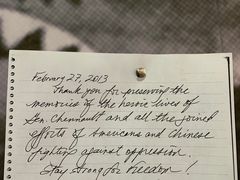 February 27, 2013
Thank you for preserving the
memories of the heroic lives of
Gen. Chennault and all the joined
efforts of Americans and Chinese
fighting against oppression.
Stay Strong for Freedom!